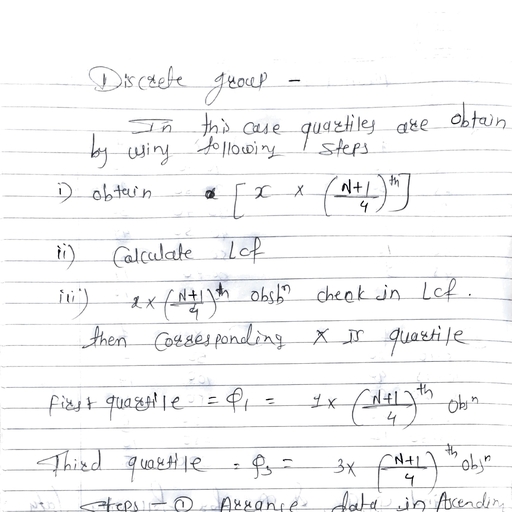 Discrete group -
In this case quartiles are obtain
by using following steps
i) obtain [ x × (N+1/4)th ]
ii) Calculate Lcf
iii) x × (N+1/4)th obsbn check in Lcf.
then corresponding x is quartile
First quartile = Q1 = 1 × (N+1/4)th Obsn
Third quartile = Q3 = 3 × (N+1/4)th obsn
Steps - ① Arrange data in Ascendin